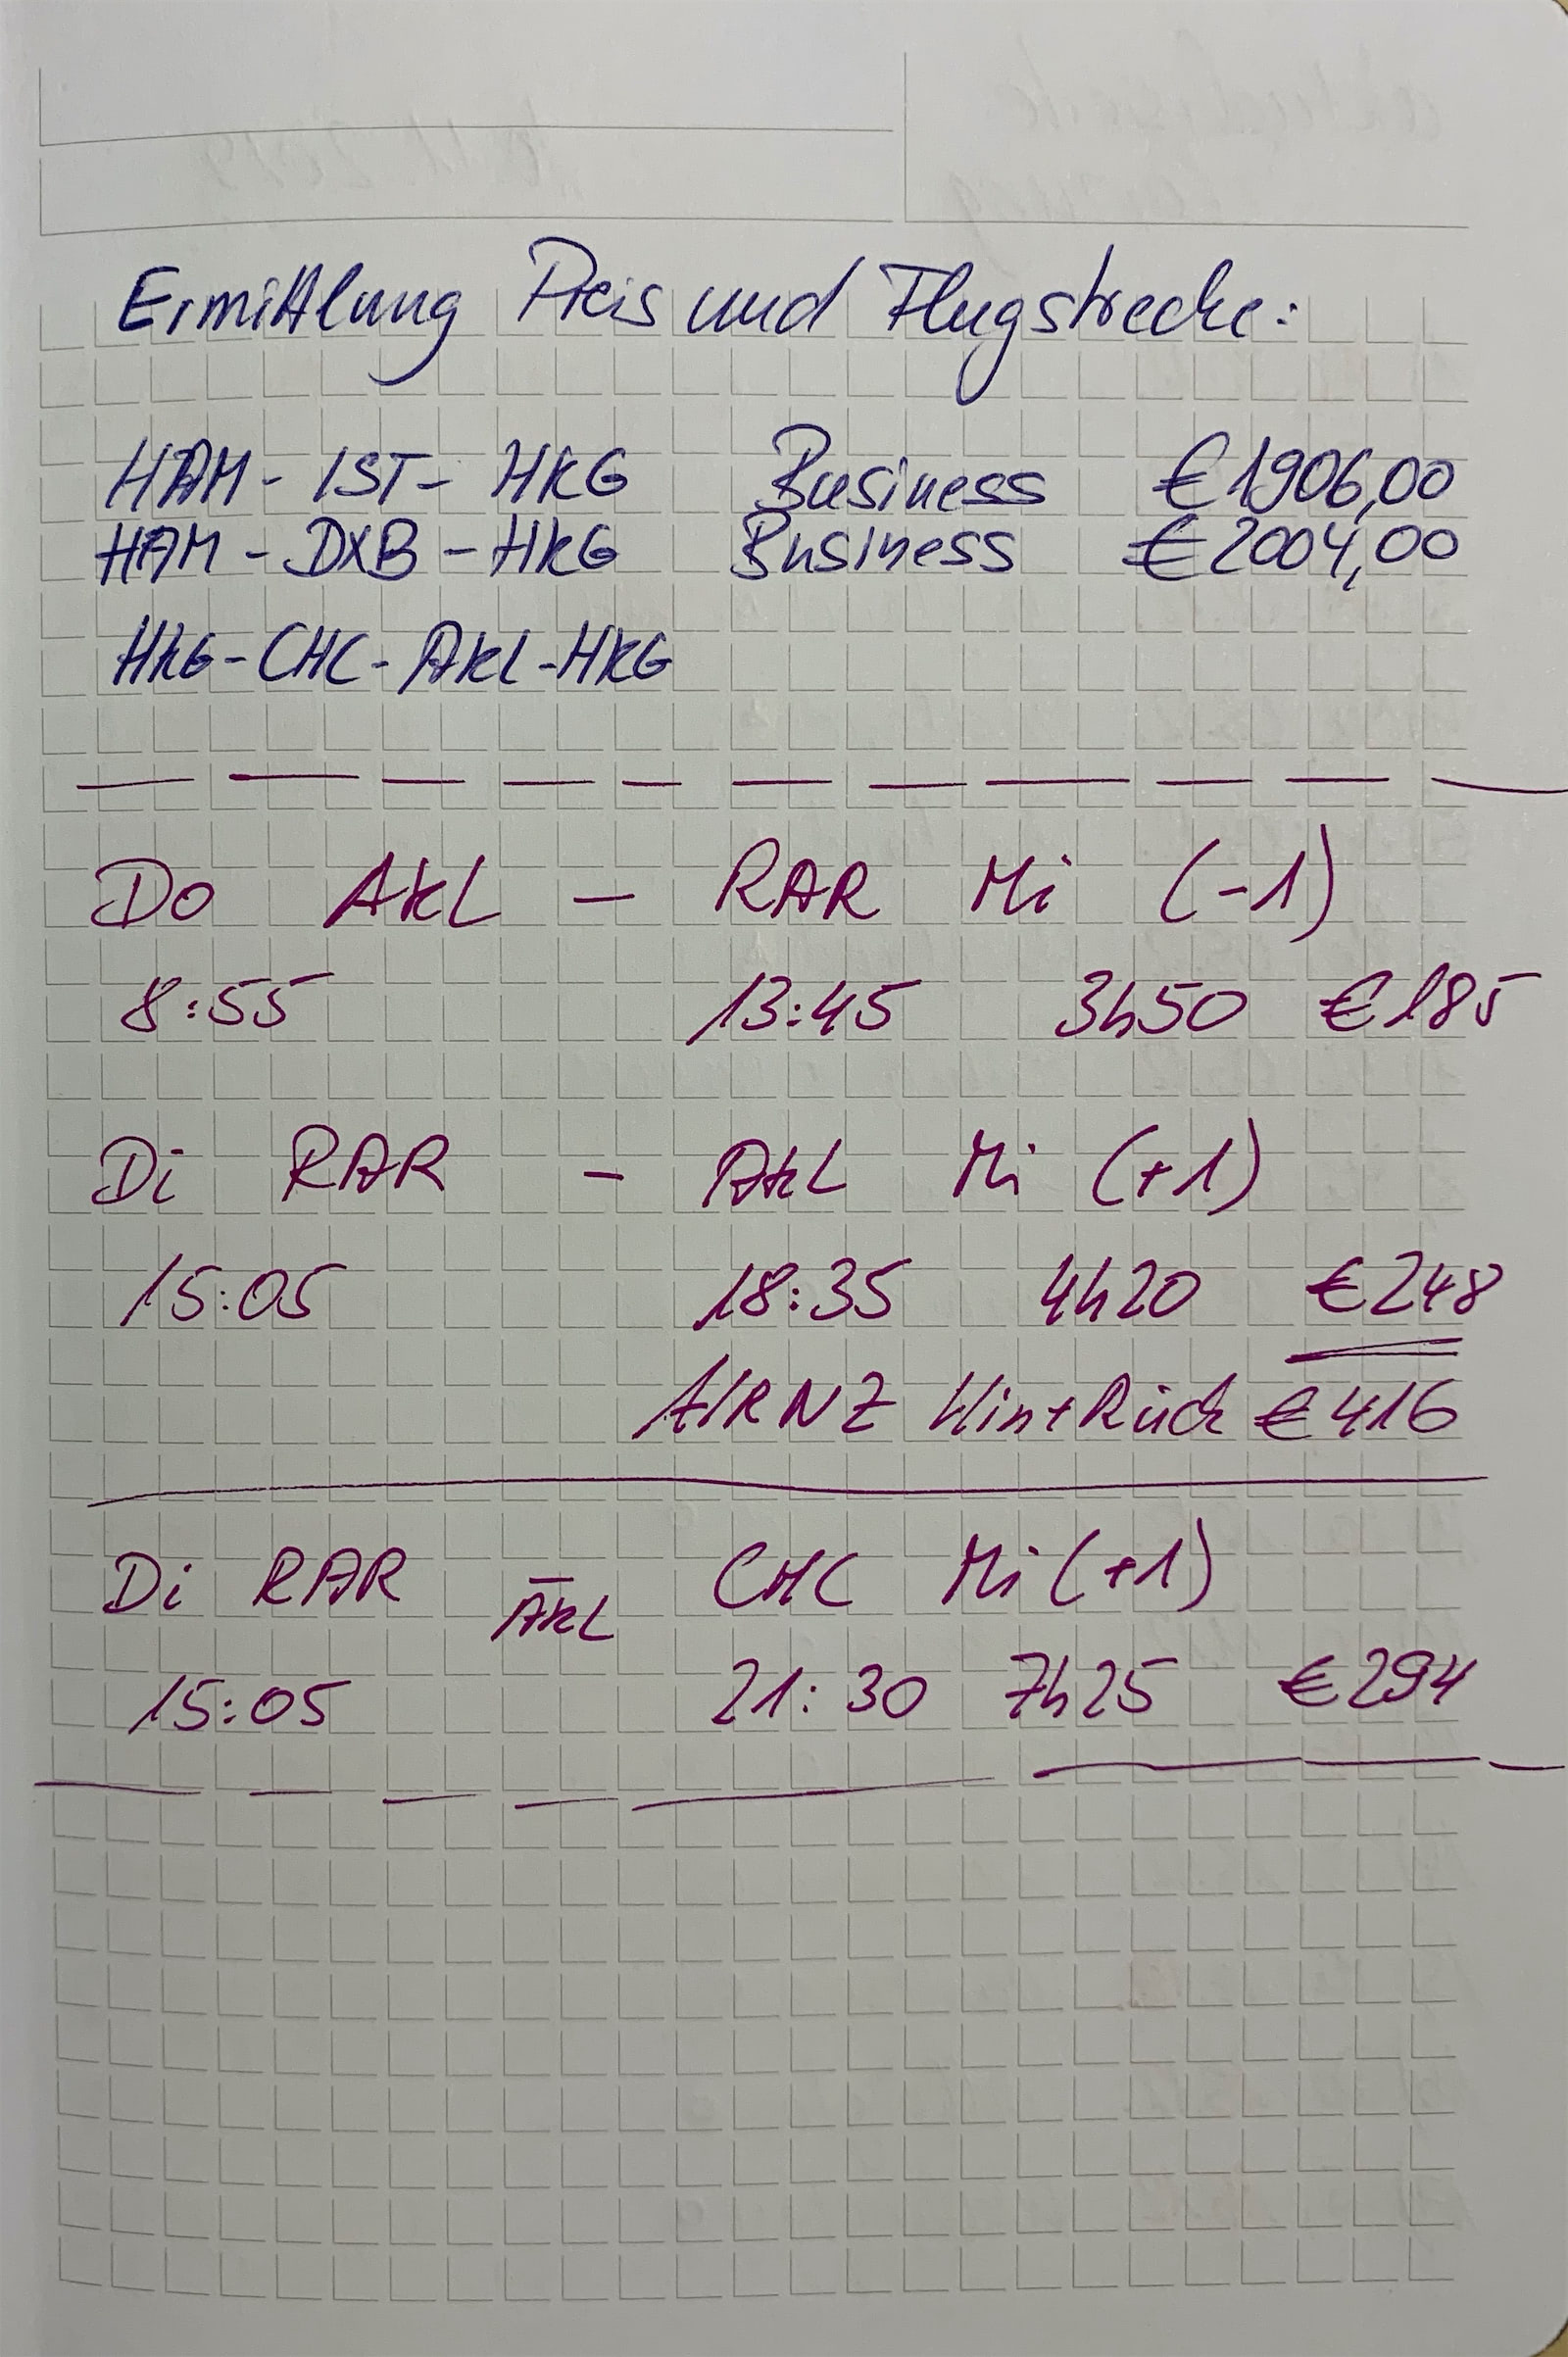 Ermittlung Preis und Flugstrecke:
HAM - IST - HKG Business €1906,00
HAM - DXB - HKG Business €2004,00
HKG - CHC - AKL - HKG
Do AKL - RAR Mi (-1)
8:55 13:45 3h50 €185
Di RAR - AKL Mi (+1)
15:05 18:35 4h20 €248
AIRNZ Hin+Rück €416
Di RAR - CHC Mi (+1)
AKL
15:05 21:30 7h25 €294